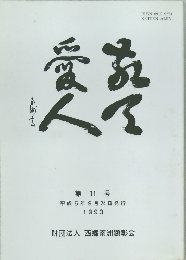 敬天
愛人
第 11 号
平成5年9月24日発行
1993
財団法人 西郷南洲顕彰会